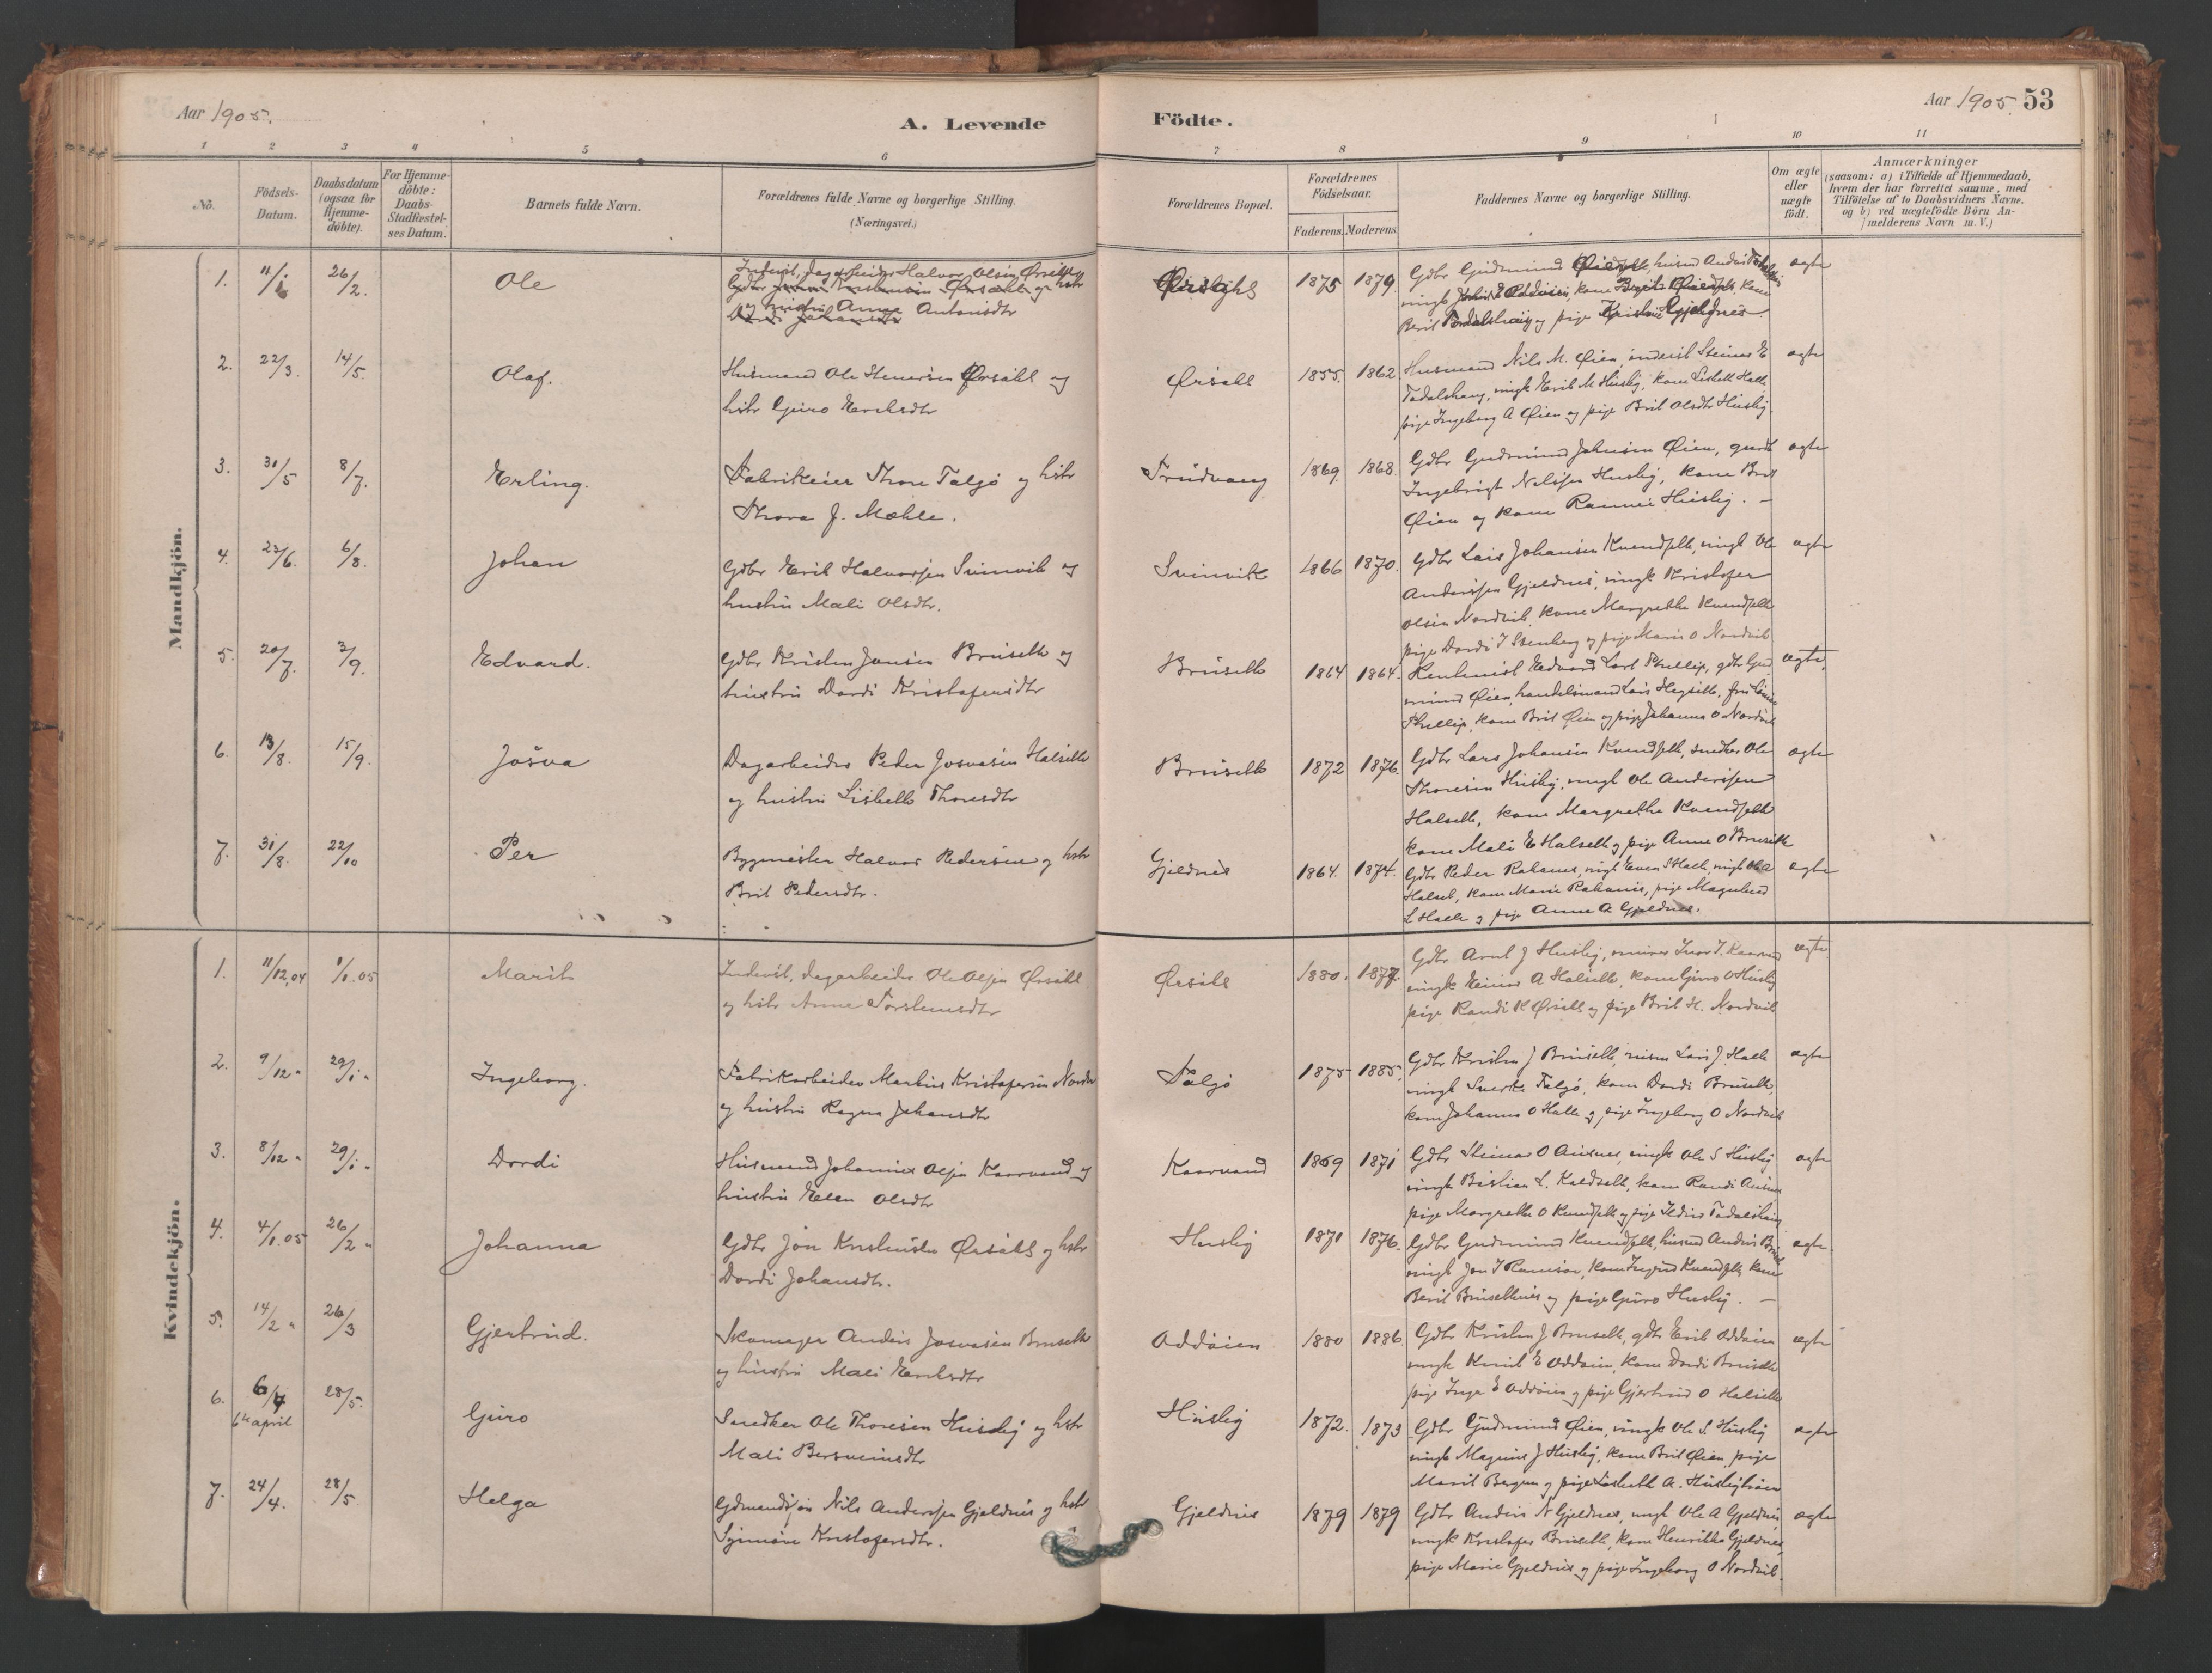 Aar 1905.
A. Levende
Födte.
Aar 1905. 53
1 2 3 4 5 6 7 8 9 10 11
No.
Födsels-Datum.
Daabsdatum (ogsaa for Hjemme-döbte).
For Hjemme-döbte: Daabs-Stadfæstel-ses Datum.
Barnets fulde Navn.
Forældrenes fulde Navne og borgerlige Stilling.
(Næringsvei.)
Forældrenes Bopæl.
Forældrenes Födselsaar.
Faderens. Moderens.
Faddernes Navne og borgerlige Stilling.
Om ægte eller uægte födt.
Anmærkninger
(saasom: a) i Tilfælde af Hjemmedaab,
hvem der har forrettet samme, med
Tilföielse af to Daabsvidners Navne.
og b) ved uægtefödte Börn An-
melderens Navn m.V.)
Mandkjön.
1. 11/1 26/2. Ole
Inderst, dagarbeider Halvor Olsen Ørsahl
og hustru Anna Antonsdtr
1875 1879
Gdbr Gudmund
Berit og pige Gjeldnes.
ægte
2. 22/3. 14/5. Olaf.
Husmand Ole Stenersen Ørsahl og
hstr Guro Eriksdtr
Ørsahl 1855. 1862
Husmand Nils M. Øien, inderst Steinar E
Todalshaug, ungk Erik M Husby, kone Lisbett Halle
pige Ingeborg A Øien og pige Brit Olsdtr Husby.
ægte
3. 31/5 8/7. Erling.
Fabrikeier Thore Talgö og hstr
Thora J. Mæhle.
Trudvang 1869. 1868.
Gdbr Gudmund Johnsen Øien, gaardb
Ingebrigt Nilssen Husby, kone Brit
Øien og kone Rannei Husby. —
ægte
4. 22/6. 6/8. Johan
Gdbr Erik Halvorsen Svinvik og
hustru Mali Olsdtr.
Svinvik 1866 1870.
Gdbr Lars Johansen Kvendseth, ungk Ole
Anderssen Gjeldnes, ungk Kristofer
Olsen Nordvik, kone Margrethe Kvendseth
pige Dordi I Stenberg og pige Marie O Nordvik
ægte
5. 20/7. 3/9. Edvard.
Gdbr Kristen Jonsen Bruseth og
hustru Dordi Kristofersdtr
Bruseth 1864 1864.
Rentenist Edvard Lort Phillip, gdbr Gud
mund Øien, handelsmand Lars Hegseth, fru Louise
Phillip, kone Brit Øien og pige Johanna O Nordvik
ægte.
6. 13/8. 15/9. Josva
Dagarbeider Peder Josvasen Halseth
og hustru Lisbeth Thoresdtr
Bruseth 1872 1876.
Gdbr Lars Johansen Kvendseth, snedker Ole
Thoresen Husby, ungk Ole Anderssen
Halseth, kone Margrethe Kvendseth
kone Mali E Halseth og pige Anne O Bruseth
ægte
7. 31/8. 22/10 Per
Bygmester Halvor Pedersen og hstr
Brit Pedersdtr.
Gjeldnes 1864. 1874.
Gdbr Peder Rakanes, ungk Even S Halle, ungk Ole A
Halset, kone Marie Rakanes, pige Magnhild
L Halle og pige Anne A Gjeldnes.
ægte
Kvindekjön.
1. 11/12.04 1/1.05 Marit
Inderst, dagarbeider Ole Olsen Ørsahl
og hstr Anne Torstensdtr
Ørsahl 1880. 1877.
Gdbr Arnt J Husby, Ivar T. Kaarvand
ungk Einar A Halseth, kone Guro O Husby
pige Randi K Ørsahl og pige Brit H. Nordvik
ægte
2. 9/12 " 29/1 " Ingeborg.
Fabrikarbeider Markus Kristofersen Nordv
og hustru Ragna Johansdtr
Talgö 1875 1885.
Gdbr Kristen J Bruseth, Lars J. Halle
ungk Sverke Talgö, kone Dordi Bruseth,
kone Johanna O Halle og pige Ingeborg O Nordvik
ægte
3. 8/12 " 29/1 " Dordi
Husmand Johannes Olsen Kaarvand og
hustru Elen Olsdtr
Kaarvand 1869 1871
Gdbr Steinar O Ansnes, ungk Ole S Husby
ungk Bastian L. Kaldseth, kone Randi Ansnes
pige Margrethe O Kvendseth og pige Ildri Todalshaug
ægte
4. 4/1.05 26/2 " Johanna
Gdbr Jon Kristensen Ørsahl og hstr
Dordi Johansdtr.
Husby 1871 1876.
Gdbr Gudmund Kvendseth, husmd Anders
ungk Jon I Ramsöe, kone Ingrid Kvendseth, kone
Berit Brusethnes og pige Guro Husby. —
ægte
5. 14/2 " 26/3 Gjertrud.
Skomager Anders Josvasen Bruseth
og hustru Mali Eriksdtr
Oddøien 1880 1886.
Gdbr Kristen J Bruseth, gdbr Erik Oddøien
ungk Knut E Oddøien, kone Dordi Bruseth
pige Inga E Oddøien og pige Gjertrud O Halseth
ægte
6. 6/4 28/5. Guro
6te april
Snedker Ole Thoresen Husby og hstr
Mali Bersveinsdtr
Husby 1872. 1873
Gdbr Gudmund Øien, ungk Ole S. Husby
ungk Magnus J Husby, kone Brit Øien, pige
Marit Bergem og pige Lisbeth A. Husbytrøen
ægte
7. 24/4. 28/5 Helga
Gdmandssøn Nils Anderssen Gjeldnes og hstr
Synnøve Kristofersdtr.
Gjeldnes 1879 1879
Gdbr Anders N Gjeldnes, ungk Ole A Gjeldnes,
ungk Kristofer Bruseth, kone Henrikka Gjeldnes,
pige Marie Gjeldnes og pige Ingeborg O Nordvik.
ægte